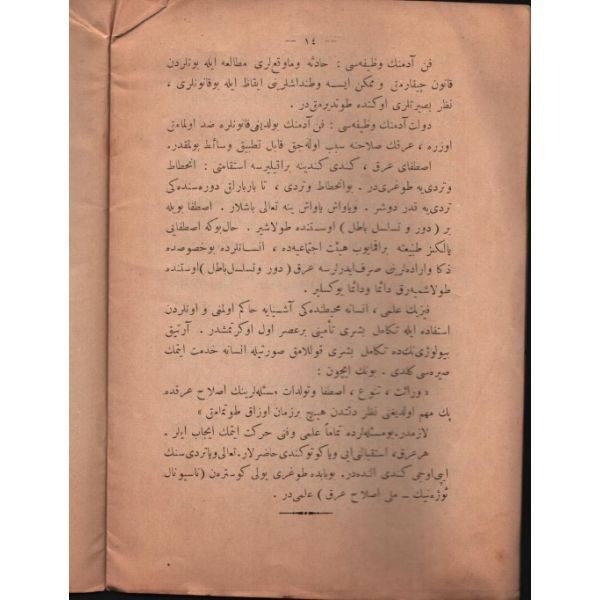 — ١٤ —
فن آدمنك وظيفه‌سى : حادثه وماوقعلرى مطالعه ايله بونلردن
قانون چيقارمق و ممكن ايسه وطنداشلرينى ايقاظ ايله بوقانونلرى ،
نظر بصيرتلرى اوكنده طوتديرمق‌در .
دولت آدمنك وظيفه‌سى : فن آدمنك بولديغى قانونلره ضد اولمامق
اوزره ، عرقك صلاحنه سبب اوله‌جق قابل تطبيق وسائط بولمقدر.
اصطفاى عرق ، كندى كندينه براقيليرسه استقامتى : انحطاط
وتردى‌يه طوغرى‌در . بوانحطاط وتردى ، تا باربارلق دوره‌سنده‌كى
تردى‌يه قدر دوشر . وياواش ياواش ينه تعالى باشلار . اصطفا بويله
بر ( دور و تسلسل باطل ) اوستنده طولاشير . حال‌بوكه اصطفايى
يالكز طبيعته براقمايوب هيئت اجتماعيه‌ده ، انسانلرده بوخصوصده
ذكا واراده‌لرينى صرف‌ايدرلرسه عرق ( دور وتسلسل‌باطل ) اوستنده
طولاشميه‌رق دائما ودائما يوكسلير .
فيزيك علمى ، انسانه محيطنده‌كى آشيايه حاكم اولمغى و اونلردن
استفاده ايله تكامل بشرى تأمينى برعصر اول اوكرتمشدر . آرتيق
بيولوژى‌نك‌ده تكامل بشرى قوللامق صورتيله انسانه خدمت ايتمك
صيره‌سى كلدى . بونك ايچون :
« وراثت ، تنوع ، اصطفا وتولدات مسئله‌لرينك اصلاح عرقده
پك مهم اولديغنى نظر دقتدن هيچ برزمان اوزاق طوتمامق »
لازمدر. بومسئله‌لرده تماماً علمى وفنى حركت ايتمك ايجاب ايلر .
هرعرق ، استقبالنى‌ايى وياكوتوكندى حاضرلار. تعالى‌وياتردى‌سنك
ايپ‌اوجى كندى النده‌در. بوبابده طوغرى يولى كوسترەن (ناسيونال
ئوژه‌نيك — ملى اصلاح عرق ) علمى‌در .